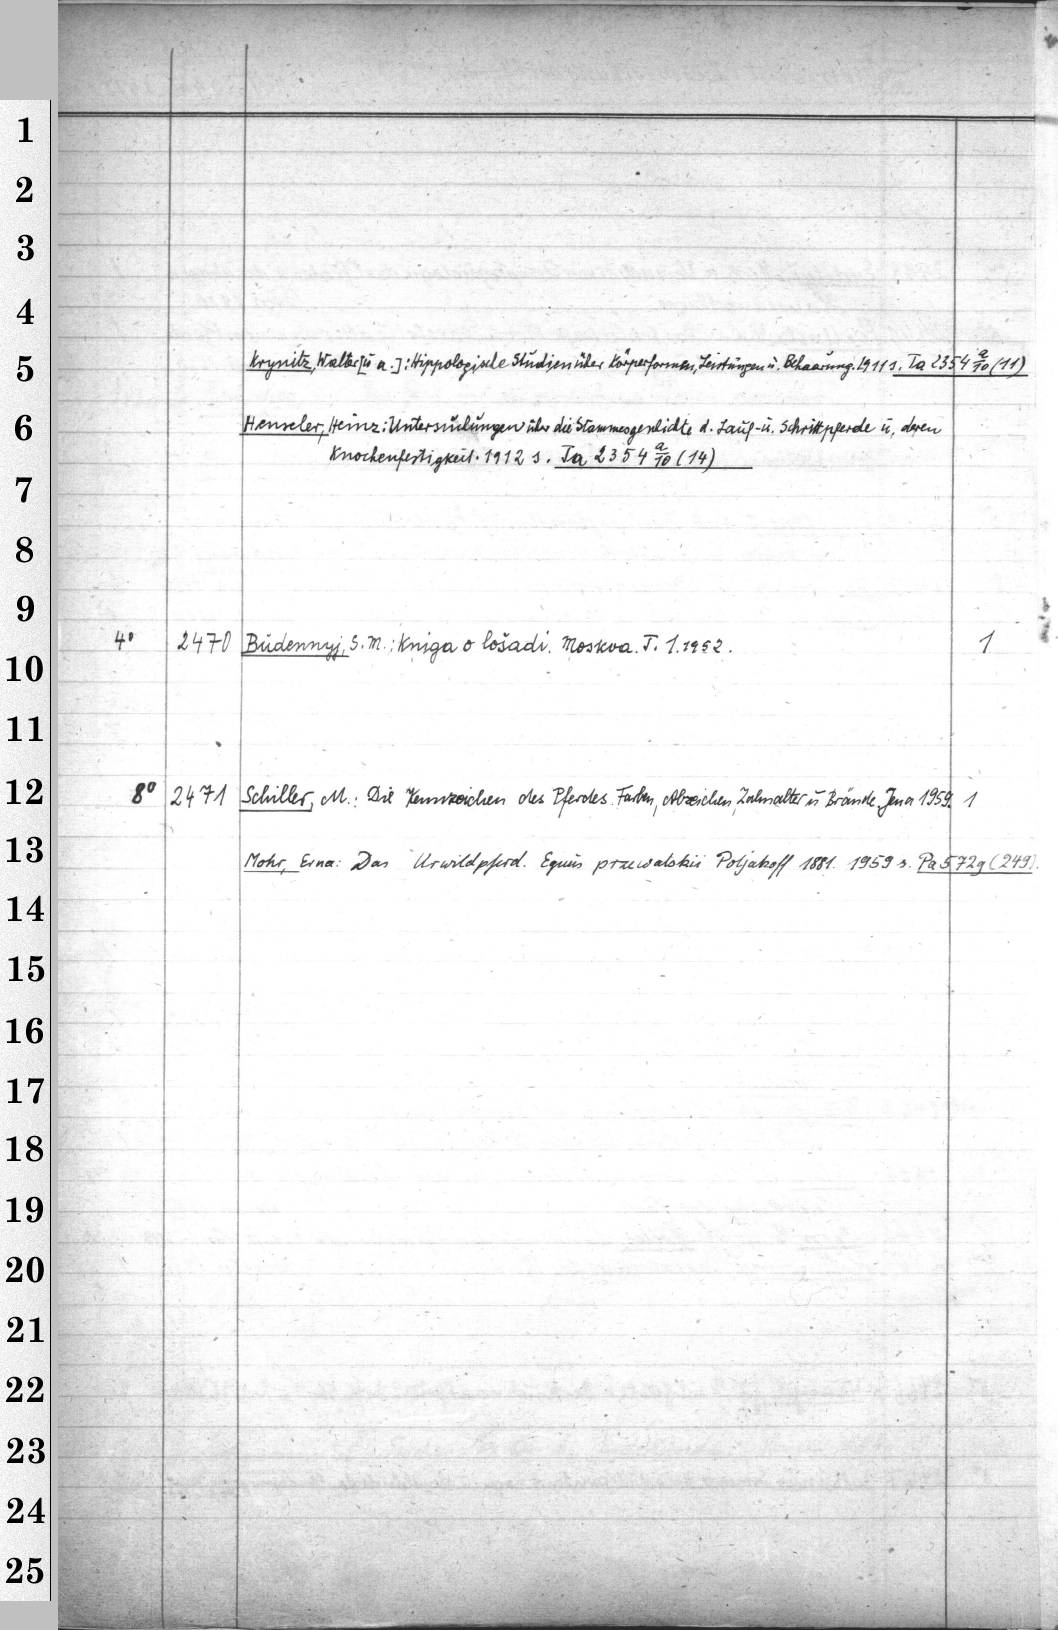 1
2
3
4
5 Krynitz, Walter [u a.]: Hippologische Studien über Körperformen, Leistungen u. Behaarung. 1911 s. Ta 2354 a/10 (11)
6 Henseler, Heinz: Untersuchungen über die Stammesgeschichte d. Lauf- u. Schrittpferde u. deren
Knochenfestigkeit. 1912 s. Ta 2354 a/10 (14)
7
8
9
4° 2470 Budennyj, S. M.: Kniga o lošadi. Moskva. T. 1. 1952. 1
10
11
12 8° 2471 Schiller, M.: Die Kennzeichen des Pferdes. Farben, Abzeichen, Zahnalter u Brände. Jena 1959. 1
13 Mohr, Erna: Das Urwildpferd. Equus przewalskii Poljakoff 1881. 1959 s. Pa 572g (249).
14
15
16
17
18
19
20
21
22
23
24
25